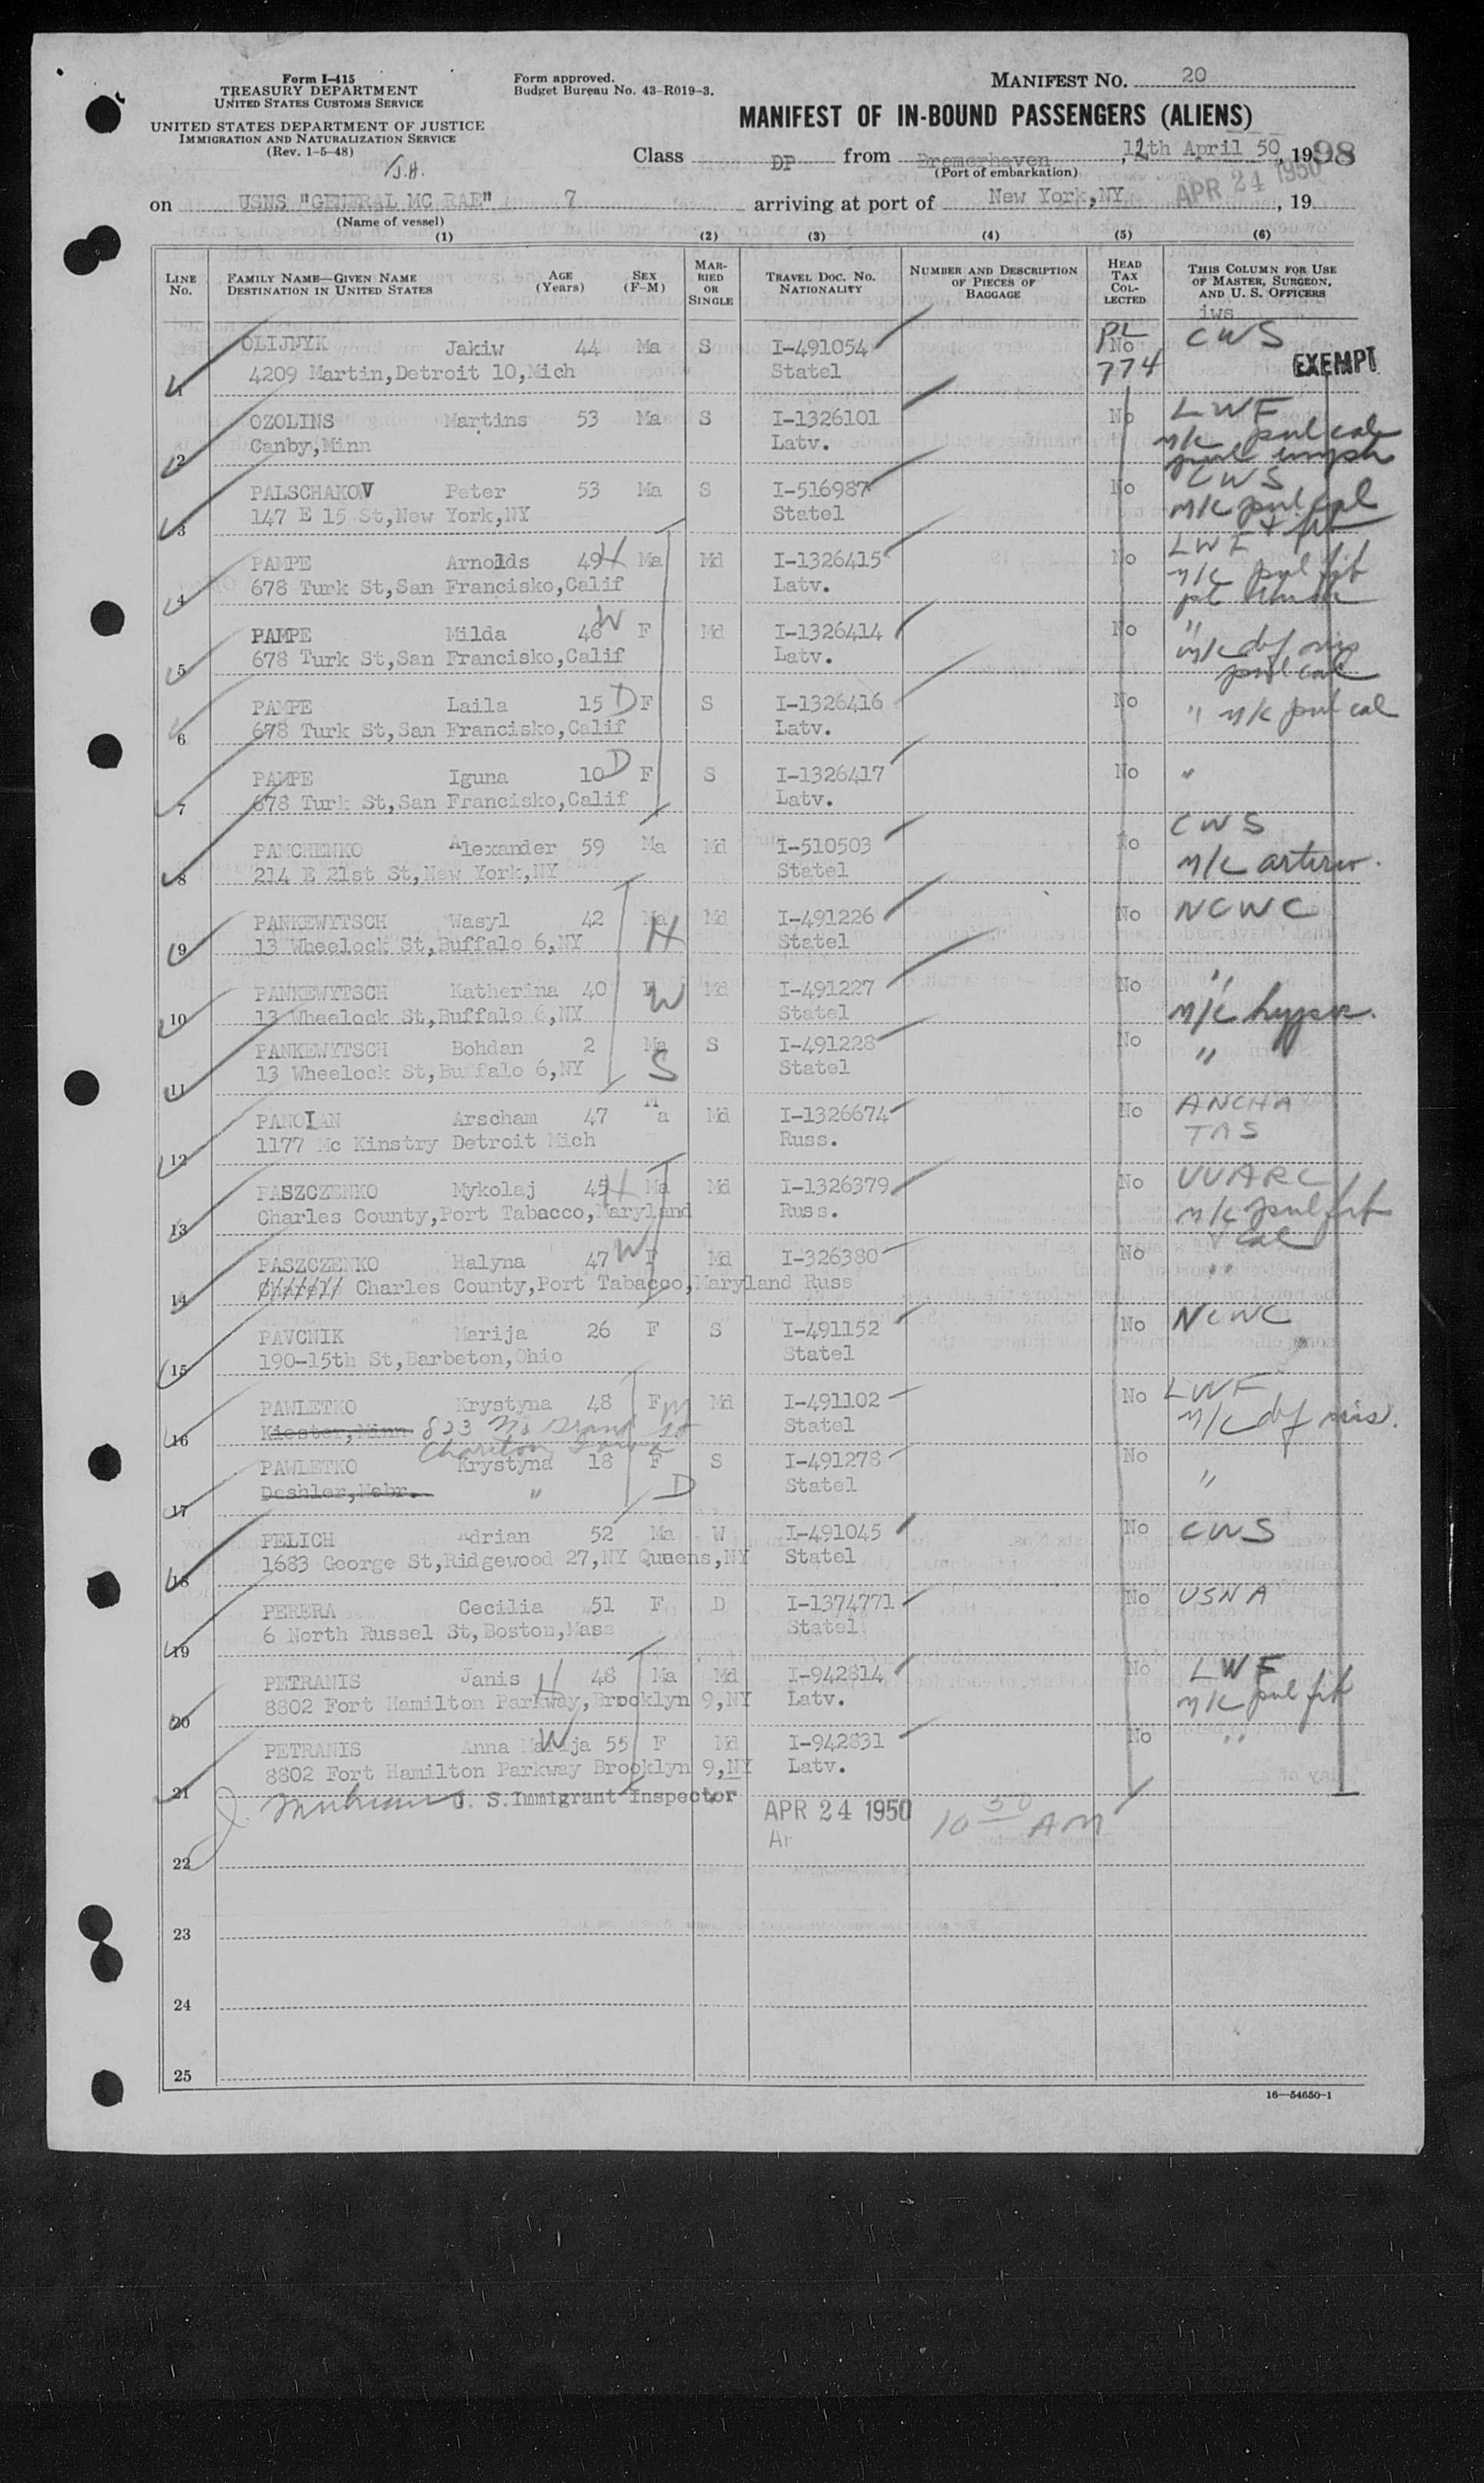 Form I-415
TREASURY DEPARTMENT
UNITED STATES CUSTOMS SERVICE
UNITED STATES DEPARTMENT OF JUSTICE
IMMIGRATION AND NATURALIZATION SERVICE
(Rev. 1-5-48)
Form approved.
Budget Bureau No. 43-R019-3.
MANIFEST NO. 20
MANIFEST OF IN-BOUND PASSENGERS (ALIENS)
Class DP from Bremerhaven, 12th April 50, 19 98
(Port of embarkation)
APR 24 1950
on USNS "GENERAL MC RAE" 7 arriving at port of New York, NY, 19
(Name of vessel)
(1) (2) (3) (4) (5) (6)
LINE No. FAMILY NAME—GIVEN NAME DESTINATION IN UNITED STATES AGE (Years) SEX (F-M) MARRIED OR SINGLE TRAVEL DOC. NO. NATIONALITY NUMBER AND DESCRIPTION OF PIECES OF BAGGAGE HEAD TAX COLLECTED THIS COLUMN FOR USE OF MASTER, SURGEON, AND U. S. OFFICERS
iws
1 OLIJNYK Jakiw 44 Ma S I-491054 PL No CWS
4209 Martin,Detroit 10,Mich Statel 774 EXEMPT
2 OZOLINS Martins 53 Ma S I-1326101 No LWF
Canby,Minn Latv. n/c pul cal
3 PALSCHAKOV Peter 53 Ma S I-516987 No CWS
147 E 15 St,New York,NY Statel n/c pul cal
4 PAMPE Arnolds 49 H Ma Md I-1326415 No LWF
678 Turk St,San Francisko,Calif Latv. n/c pul fib
5 PAMPE Milda 48 W F Md I-1326414 No "
678 Turk St,San Francisko,Calif Latv. n/c def vis
pul cal
6 PAMPE Laila 15 D F S I-1326416 No " n/c pul cal
678 Turk St,San Francisko,Calif Latv.
7 PAMPE Iguna 10 D F S I-1326417 No "
678 Turk St,San Francisko,Calif Latv.
8 PAMCHENKO Alexander 59 Ma Md I-510503 No CWS
214 E 21st St,New York,NY Statel n/c arterio.
9 PANKEWYTSCH Wasyl 42 Ma H Md I-491226 No NCWC
13 Wheelock St,Buffalo 6,NY Statel
10 PANKEWYTSCH Katherina 40 F W Md I-491227 No "
13 Wheelock St,Buffalo 6,NY Statel n/c hyper.
11 PANKEWYTSCH Bohdan 2 Ma S S I-491228 No "
13 Wheelock St,Buffalo 6,NY Statel
12 PANOIAN Arscham 47 Ma Md I-1326674 No ANCHA
1177 Mc Kinstry Detroit Mich Russ.
13 PASZCZENKO Mykolaj 45 H Ma Md I-1326379 No UUARC
Charles County,Port Tabacco,Maryland Russ. n/c pul fib
& cal
14 PASZCZENKO Halyna 47 W F Md I-326380 No "
Charles County,Port Tabacco,Maryland Russ
15 PAVCNIK Marija 26 F S I-491152 No NCWC
190-15th St,Barbeton,Ohio Statel
16 PAWLETKO Krystyna 48 F M Md I-491102 No LWF
Kiester,Minn 823 No Grand St Statel n/c def vis.
Chariton Iowa
17 PAWLETKO Krystyna 18 F S I-491278 No "
Deshler,Nebr. " D Statel
18 PELICH Adrian 52 Ma W I-491045 No CWS
1683 George St,Ridgewood 27,NY Quuens,NY Statel
19 PERERA Cecilia 51 F D I-1374771 No USNA
6 North Russel St,Boston,Mass Statel
20 PETRANIS Janis H 48 Ma Md I-942814 No LWF
8802 Fort Hamilton Parkway,Brooklyn 9,NY Latv. n/c pul fib
21 PETRANIS Anna Marija W 55 F Md I-942831 No "
8802 Fort Hamilton Parkway Brooklyn 9,NY Latv.
U. S. Immigrant Inspector APR 24 1950 10 30 AM
Ar
22
23
24
25
16—54650-1